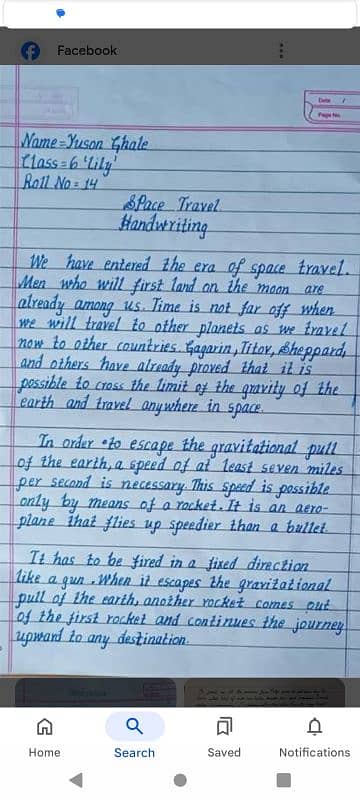 Facebook
Date /
Page No.
Name = Yuson Ghale
Class = 6 'Lily'
Roll No = 14
Space Travel
Handwriting
We have entered the era of space travel.
Men who will first land on the moon are
already among us. Time is not far off when
we will travel to other planets as we travel
now to other countries. Gagarin, Titov, Sheppard,
and others have already proved that it is
possible to cross the limit of the gravity of the
earth and travel anywhere in space.
In order to escape the gravitational pull
of the earth, a speed of at least seven miles
per second is necessary. This speed is possible
only by means of a rocket. It is an aero-
plane that flies up speedier than a bullet.
It has to be fired in a fixed direction
like a gun. When it escapes the gravitational
pull of the earth, another rocket comes out
of the first rocket and continues the journey
upward to any destination.
Home
Search
Saved
Notifications